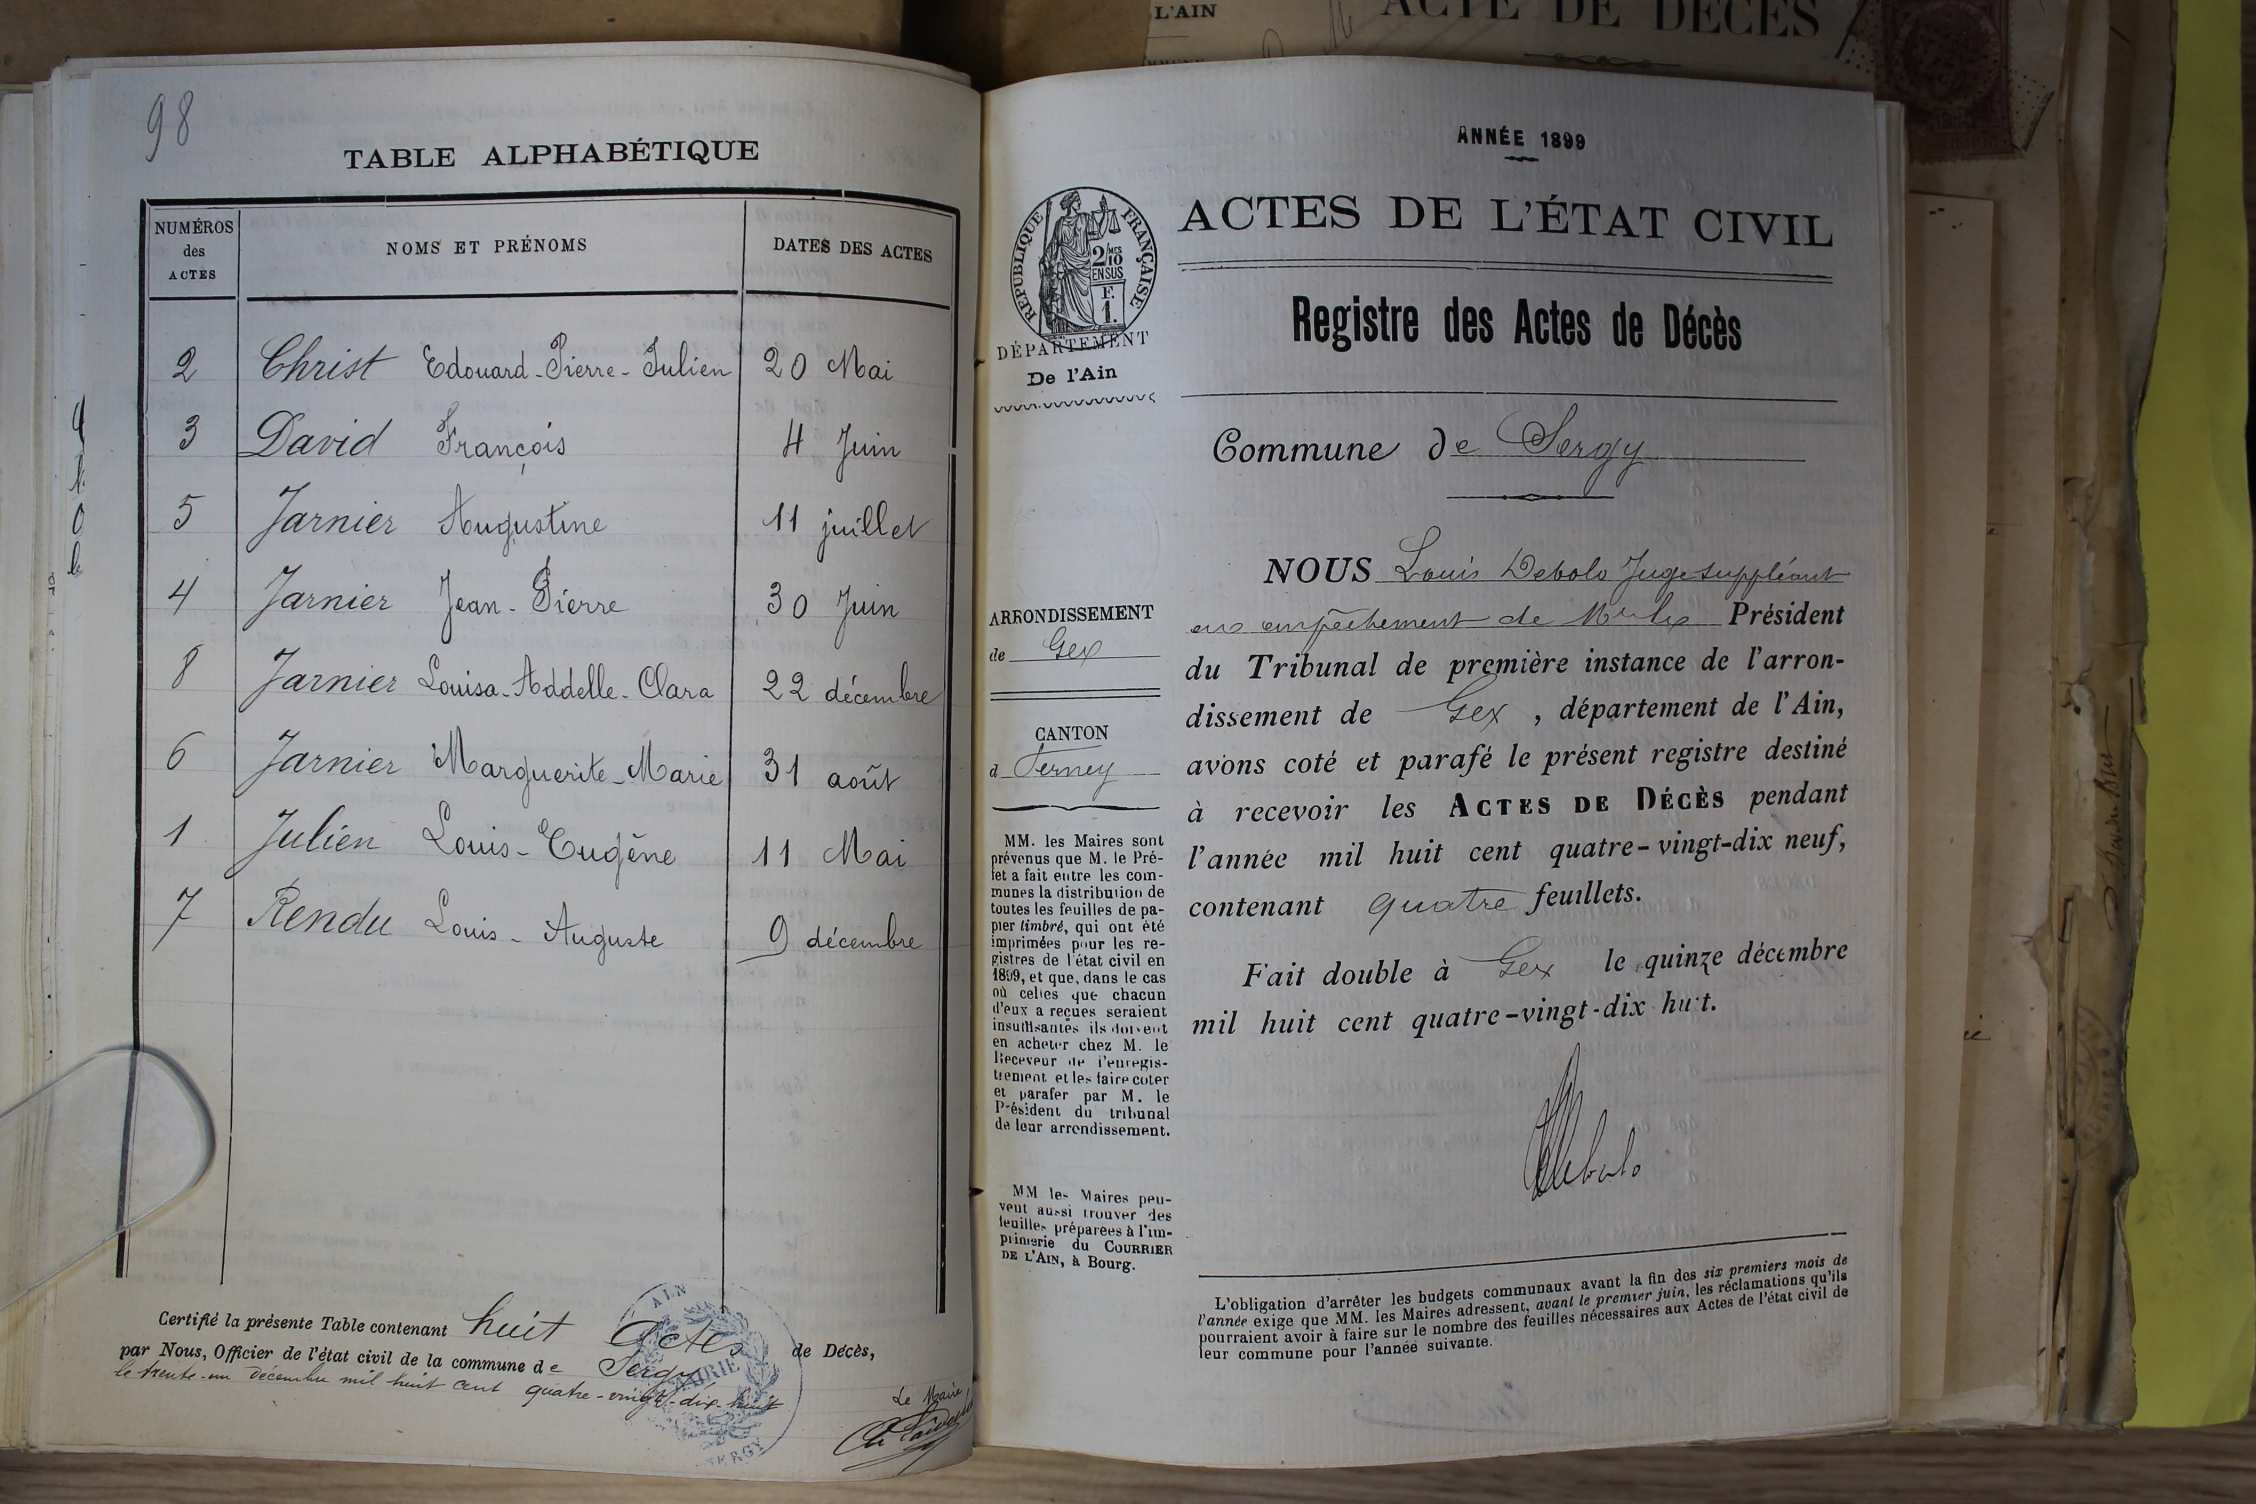 L'AIN
ACTE DE DÉCÈS
98
TABLE ALPHABÉTIQUE
NUMÉROS des ACTES
NOMS ET PRÉNOMS
DATES DES ACTES
2 Christ Edouard-Pierre-Julien 20 Mai
3 David François 4 Juin
5 Jarnier Augustine 11 juillet
4 Jarnier Jean-Pierre 30 Juin
8 Jarnier Louisa-Addelle-Clara 22 décembre
6 Jarnier Marguerite-Marie 31 août
1 Julien Louis-Eugène 11 Mai
7 Rendu Louis-Auguste 9 décembre
Certifié la présente Table contenant huit Actes de Décès,
par Nous, Officier de l'état civil de la commune de Sergy
le trente-un décembre mil huit cent quatre-vingt-dix-huit
Le Maire,
AIN
MAIRIE
SERGY
ANNÉE 1899
RÉPUBLIQUE FRANÇAISE
2/10 MES
EN SUS
F.
1.
DÉPARTEMENT
De l'Ain
ARRONDISSEMENT
de Gex
CANTON
d Ferney
MM. les Maires sont
prévenus que M. le Pré-
fet a fait entre les com-
munes la distribution de
toutes les feuilles de pa-
pier timbré, qui ont été
imprimées pour les re-
gistres de l'état civil en
1899, et que, dans le cas
où celles que chacun
d'eux a reçues seraient
insuffisantes ils doivent
en acheter chez M. le
Receveur de l'enregis-
trement et les faire coter
et parafer par M. le
Président du tribunal
de leur arrondissement.
MM les Maires peu-
vent aussi trouver des
feuilles préparées à l'im-
primerie du COURRIER
DE L'AIN, à Bourg.
ACTES DE L'ÉTAT CIVIL
Registre des Actes de Décès
Commune de Sergy
NOUS Louis Debolo Juge suppléant
en empêchement de Mr le Président
du Tribunal de première instance de l'arron-
dissement de Gex, département de l'Ain,
avons coté et parafé le présent registre destiné
à recevoir les ACTES DE DÉCÈS pendant
l'année mil huit cent quatre-vingt-dix neuf,
contenant quatre feuillets.
Fait double à Gex le quinze décembre
mil huit cent quatre-vingt-dix huit.
Debolo
L'obligation d'arrêter les budgets communaux avant la fin des six premiers mois de
l'année exige que MM. les Maires adressent, avant le premier juin, les réclamations qu'ils
pourraient avoir à faire sur le nombre des feuilles nécessaires aux Actes de l'état civil de
leur commune pour l'année suivante.